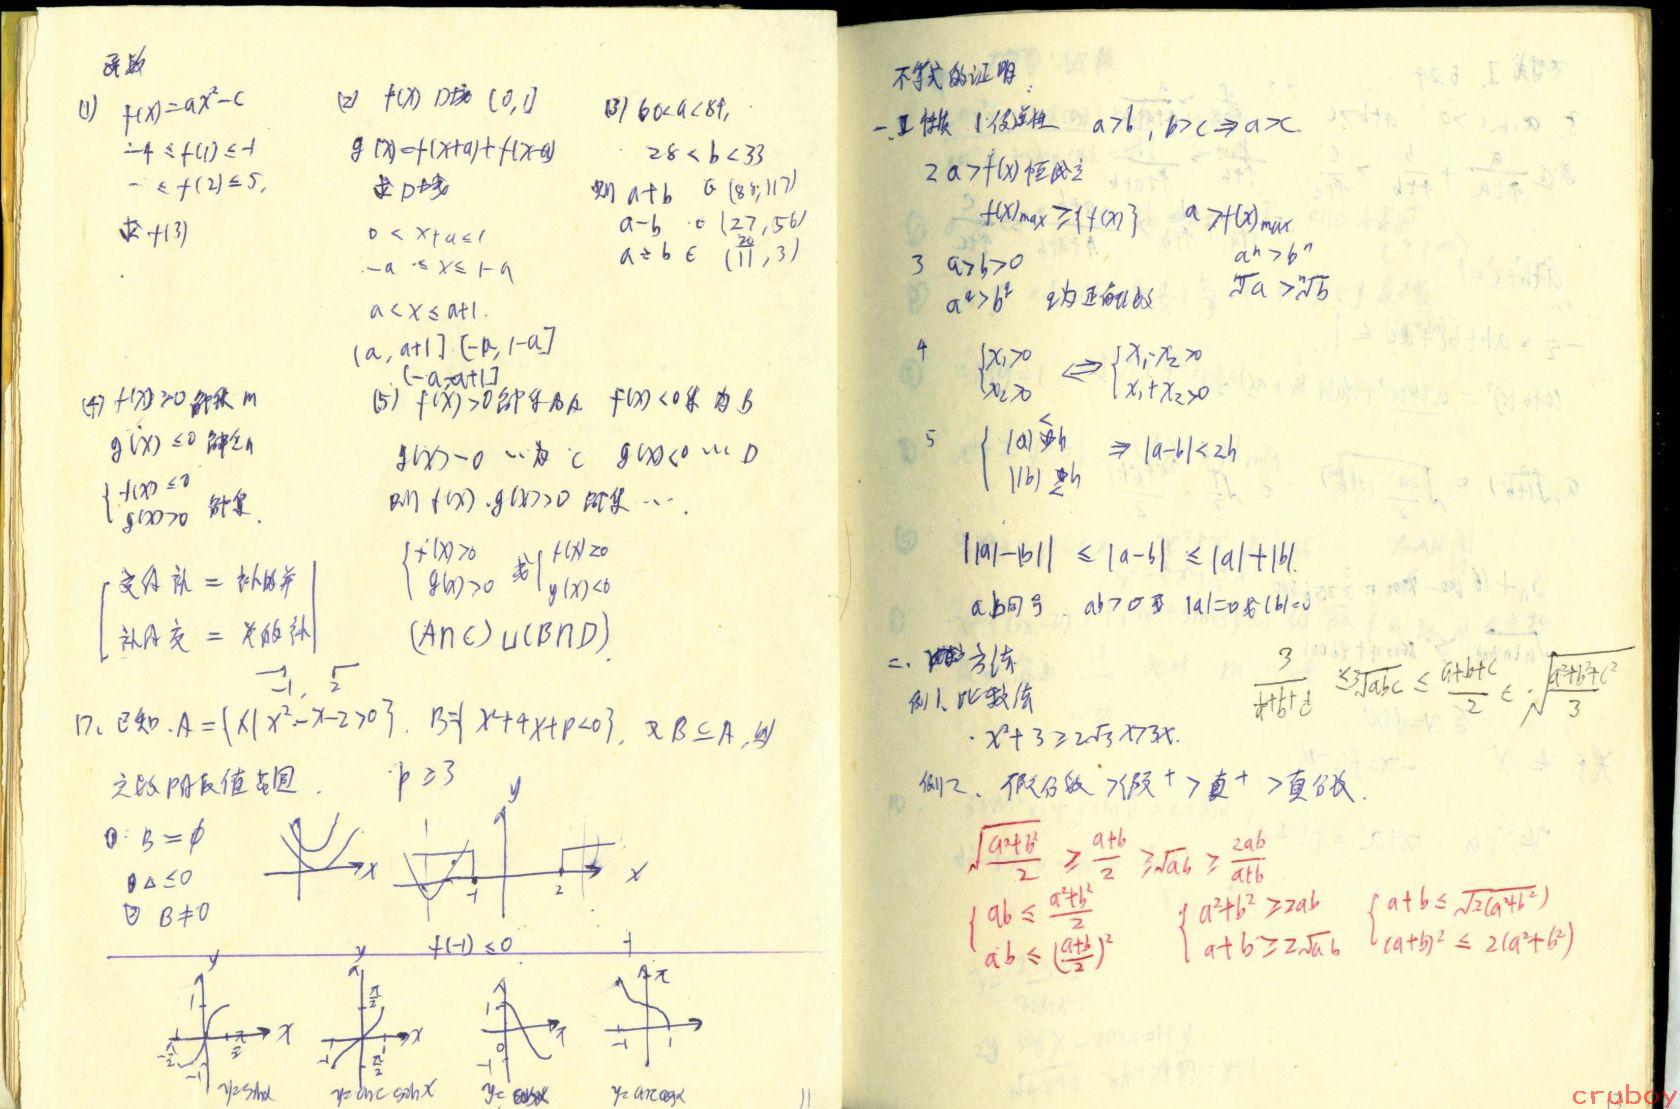 函数
(1) f(x)=ax²-c
-4≤f(1)≤-1
-1≤f(2)≤5,
求f(3)
(2) f(x) D域 [0,1]
g(x)=f(x+a)+f(x-a)
求D域
0<x+a≤1
-a≤x≤1-a
a<x≤a+1.
(a, a+1] [-a, 1-a]
(-a, a+1]
(3) 60<a<84,
28<b<33
则 a+b ∈ (88,117)
a-b ∈ (27,56)
a÷b ∈ (20/11, 3)
(4) f(x)≥0 解集 m
g(x)≤0 解集n
{ f(x)≤0
g(x)>0 解集.
(5) f(x)>0解集为A f(x)<0集为B
g(x)>0 …为 C g(x)<0 … D
则 f(x)·g(x)>0 解集 ….
{ f(x)>0 或 { f(x)≥0
g(x)>0 g(x)<0
(A∩C)∪(B∩D)
交的补 = 补的并
补的交 = 并的补
-1, 2
17. 已知 A={x|x²-x-2>0}, B={x²+4x+p<0}, 又B⊆A, 则
实数p的取值范围. p≥3
① B=∅
△≤0
② B≠∅
x y -1 2 x
f(-1)≤0
y 1 x -π/2 -1 π/2 -1 y=sinx
y π/2 x -1 1 π/2 y=arcsinx
1 0 -1 π y=cosx
π -1 1 y=arccosx
11
不等式的证明:
一. 性质 1.传递性 a>b, b>c⇒a>c
2 a>f(x)恒成立
f(x)max≥{f(x)} a>f(x)max
3 a>b>0 aⁿ>bⁿ
a^q>b^q q为正有理数 ⁿ√a>ⁿ√b
4 { x₁>0 ⟺ { x₁·x₂>0
x₂>0 x₁+x₂>0
5 { |a|<h ⇒ |a-b|<2h
|b|<h
||a|-|b|| ≤ |a-b| ≤ |a|+|b|.
a.b同号. ab>0 或 |a|=0或|b|=0
二. 方法
例1、比较法
3/(1/a+1/b+1/c) ≤ ³√abc ≤ (a+b+c)/2 ≤ √((a²+b²+c²)/3)
x²+3≥2√3x>3x.
例二、假分数>假⁺>真⁺>真分数.
√((a²+b²)/2) ≥ (a+b)/2 ≥ √ab ≥ 2ab/(a+b)
{ ab≤(a²+b²)/2 { a²+b²≥2ab { a+b≤√2(a²+b²)
ab≤((a+b)/2)² a+b≥2√ab (a+b)²≤2(a²+b²)
cruboy